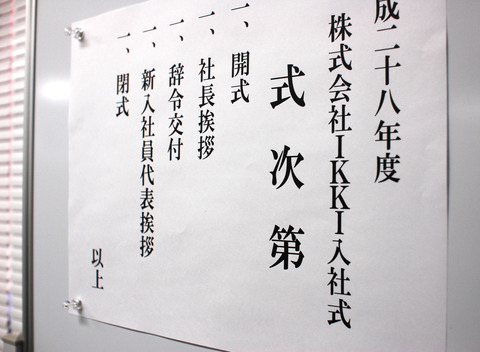 成二十八年度
株式会社IKKI入社式
式次第
一、開式
一、社長挨拶
一、辞令交付
一、新入社員代表挨拶
一、閉式
以上